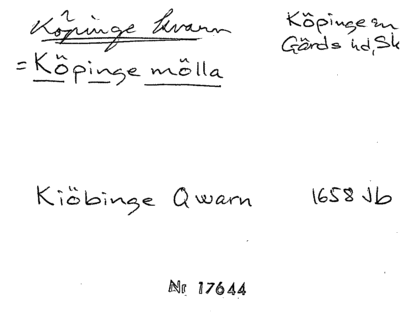 Köpinge kvarn
= Köpinge mölla
Köpinge sn
Gärds hd, Sk
Kiöbinge Qwarn 1658 Jb
Nr 17644